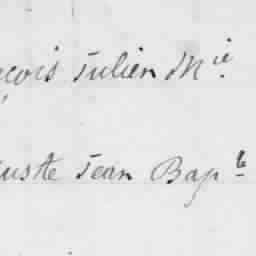 çois Julien Mie
uste Jean Bapte